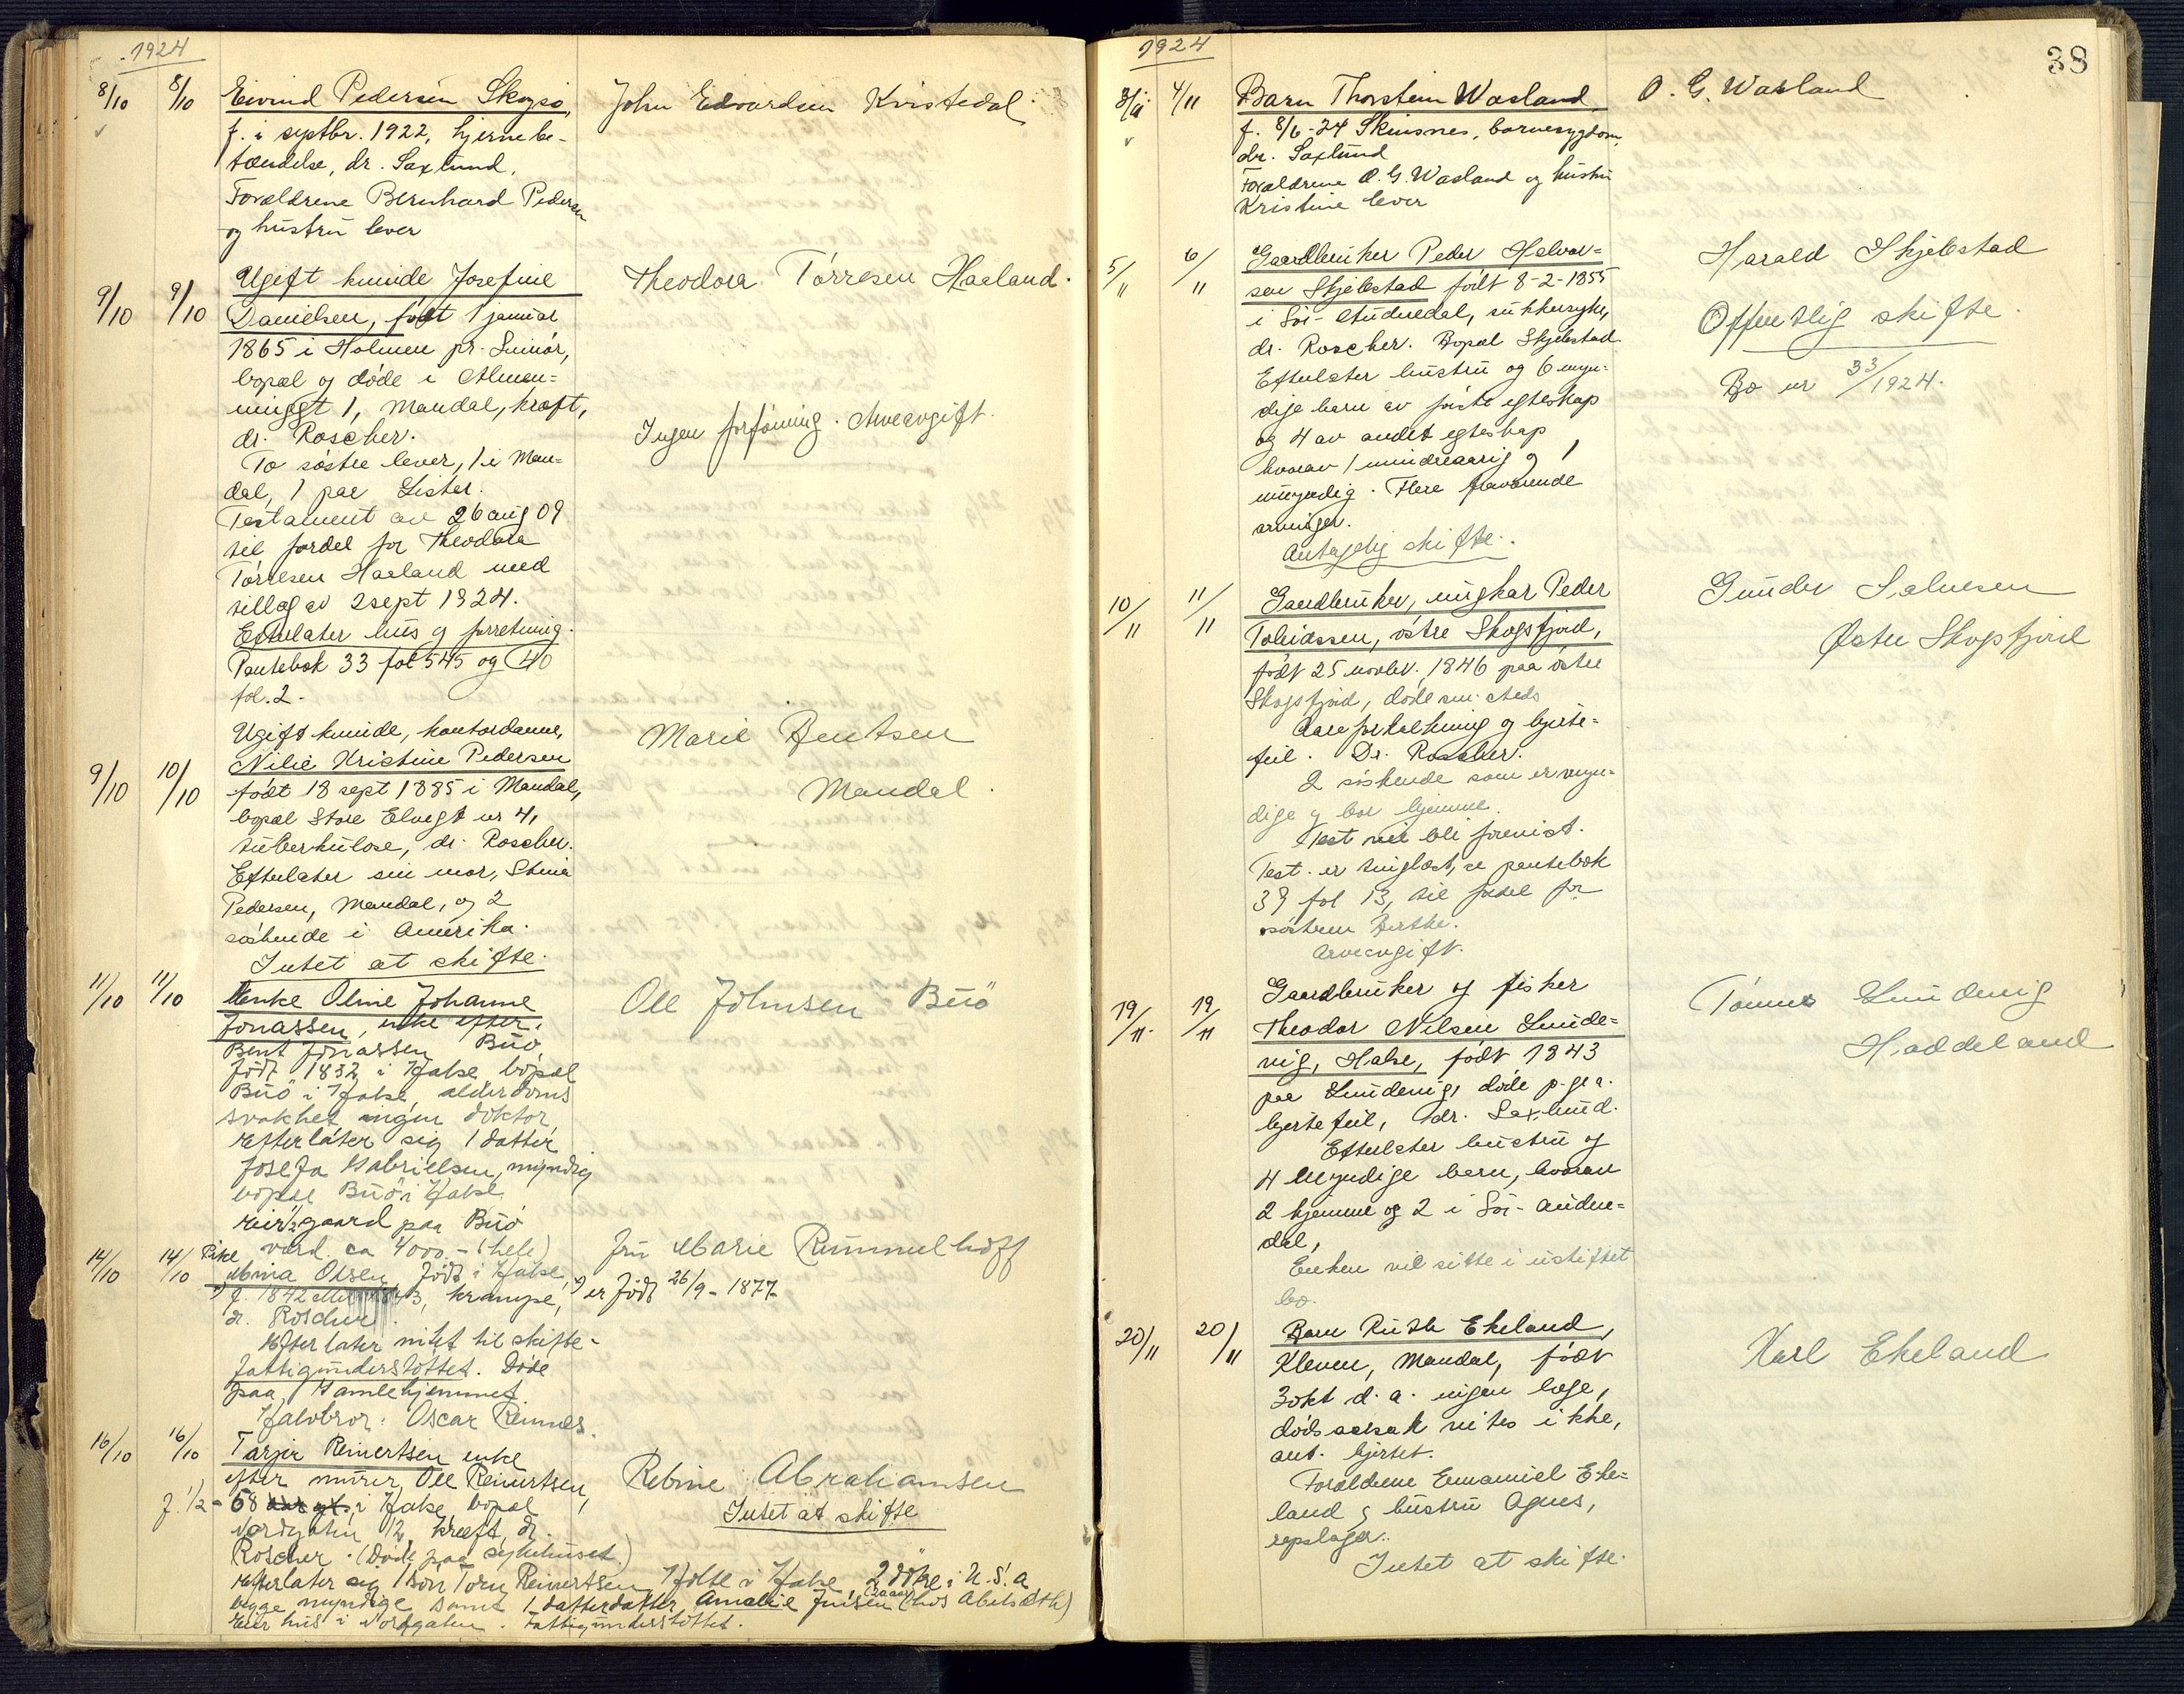 1924
8/10 8/10 Eivind Pedersen Skogsø,
f. i septbr. 1922, hjernebe-
tændelse, dr. Saxlund.
Forældrene Bernhard Pedersen
og hustru lever
John Edvardsen Kvistedal
9/10 9/10 Ugift kvinde Josefine
Danielsen, født 1 januar
1865 i Holmen pr.
bopæl og døde i Almen-
ninggt 1, Mandal, kræft,
dr. Roscher.
To søstre lever, 1 i Man-
dal, 1 paa Lister.
Testament av 26 aug 09
til fordel for Theodora
Tørresen Haaland med
tillæg av 2 sept 1924.
Efterlater hus og forretning.
Pantebok 33 fol 545 og 40
fol. 2.
Theodora Tørresen Haaland.
Ingen forføining. Arveavgift.
9/10 10/10 Ugift kvinde, kontordame,
Nilie Kristine Pedersen
født 18 sept 1885 i Mandal,
bopæl Store Elvegt nr 4,
tuberkulose, dr. Roscher.
Efterlater sin mor, Stina
Pedersen, Mandal, og 2
søskende i Amerika.
Intet at skifte.
Marie Bentsen
Mandal.
11/10 11/10 Enke Oline Johanne
Jonassen, enke efter
Bent Jonassen Buø
født 1832 i Halse bopæl
Buø i Halse, alderdoms
svakhet ingen doktor,
efterlater sig 1 datter
Josefa Gabrielsen, myndig
bopæl Buø i Halse
eier ½ gaard paa Buø
værd. ca 4000.- (hele)
Ole Johnsen Buø
14/10 14/10 Pike
Mina Olsen, født i Halse,
f. 1842 eller 1843, krampe,
dr. Roscher.
Efterlater intet til skifte-
fattigunderstøttet. Døde
paa Gamlehjemmet
Halvbror: Oscar Reinnes.
Fru Marie Rummelhoff
er født 26/9 - 1877
16/10 16/10 Tarjer Reinertsen enke
efter murer Ole Reinertsen,
f. 1/2 - 58 i Halse, bopæl
Nordgaten 12, kræft, dr.
Roscher. (Døde paa sykehuset.)
efterlater sig 1 søn Tom Reinertsen, Holte i Halse, 2 døtre i U.S.A.
begge myndige samt 1 datterdatter Amalie Jensen (hos Abels Æth)
Eier hus i Nordgaten. Fattigunderstøttet.
Rebine Abrahamsen
Intet at skifte
1924
38
3/11 4/11 Barn Thorstein Wasland,
f. 8/6-24 Skinsnes, barnesygdom,
dr. Saxlund
Forældrene O. G. Wasland og hustru
Kristine lever
O. G. Wasland
5/11 6/11 Gaardbruker Peder Halvor-
sen Skjebstad født 8-2-1855
i Sør-Audnedal, sukkersyke,
dr. Roscher. Bopæl Skjebstad.
Efterlater hustru og 6 myn-
dige barn av første egteskap
og 4 av andet egteskap
hvorav 1 mindreaarig og 1
umyndig. Flere fraværende
arvinger.
Antagelig skifte.
Harald Skjebstad
Offentlig skifte.
Bo nr 33/1924.
10/11 11/11 Gaardbruker, ungkar Peder
Tobiassen, østre Skogsfjord,
født 25 novbr. 1846 paa østre
Skogsfjord, døde sm. steds
Aareforkalkning og hjerte-
feil. Dr. Roscher.
2 søskende som er myn-
dige og bor hjemme.
Test vil bli forevist.
Test. er tinglæst, se pantebok
39 fol 13, til fordel for
søstren Berthe.
Arveavgift.
Gunder Salvesen
Østre Skogsfjord
19/11 19/11 Gaardbruker og fisker
Theodor Nilsen Lunde-
vig, Halse, født 1843
paa Lundevig, døde p.gr.a.
hjertefeil, dr. Saxlund.
Efterlater hustru og
4 myndige barn, hvorav
2 hjemme og 2 i Sør-Audne-
dal,
Enken vil sitte i uskiftet
bo.
Tønnes Lundevig
Haddeland
20/11 20/11 Barn Ruth Ekeland,
Kleven, Mandal, født
3 okt d.a. ingen læge,
dødsaarsak vites ikke,
ant. hjertet.
Forældrene Emanuel Eke-
land og hustru Agnes,
repslager.
Intet at skifte.
Karl Ekeland